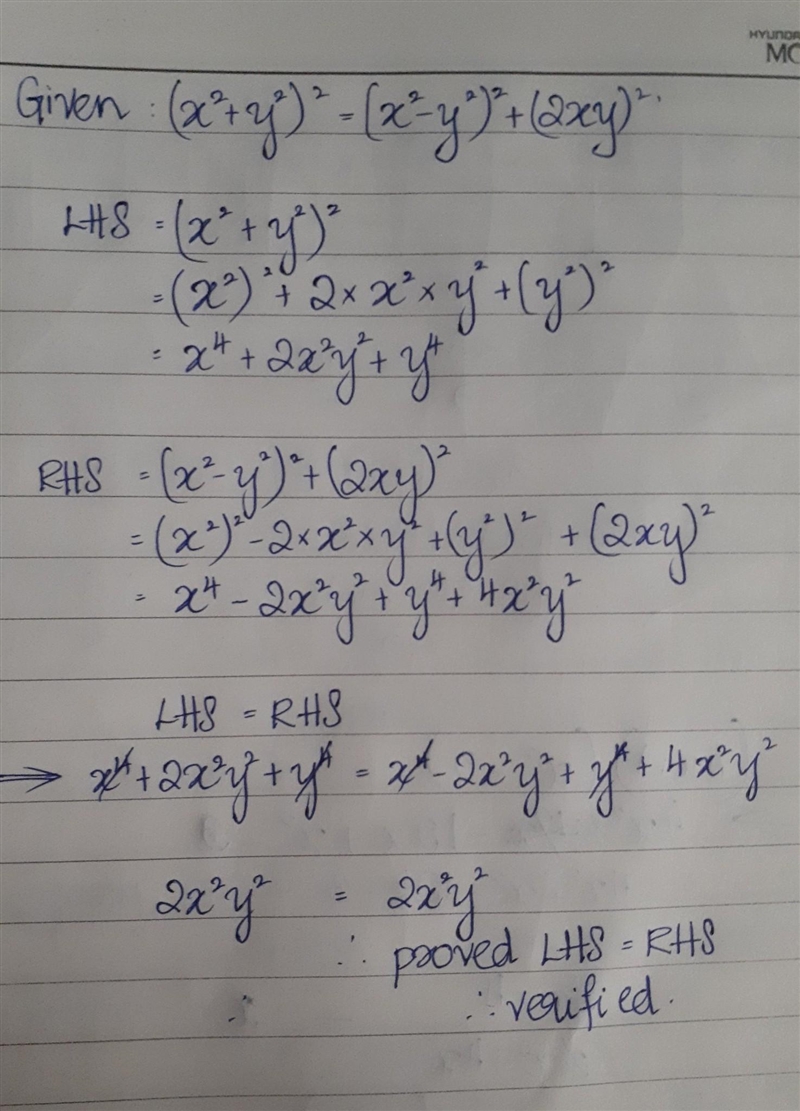 HYUNDA
MO
Given : (x²+y²)² = (x²-y²)²+(2xy)².
LHS = (x² + y²)²
= (x²)² + 2 × x² × y² + (y²)²
= x⁴ + 2x²y² + y⁴
RHS = (x²-y²)²+(2xy)²
= (x²)² - 2×x²×y² +(y²)² + (2xy)²
= x⁴ - 2x²y² + y⁴ + 4x²y²
LHS = RHS
⇒ x⁴ + 2x²y² + y⁴ = x⁴ - 2x²y² + y⁴ + 4x²y²
2x²y² = 2x²y²
∴ proved LHS = RHS
∴ ∴ verified.